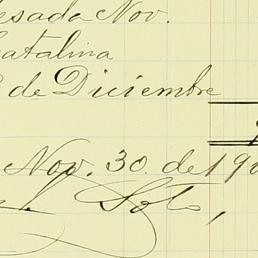 esada Nov.
atalina
de Diciembre
Nov. 30 de 190
Soto,